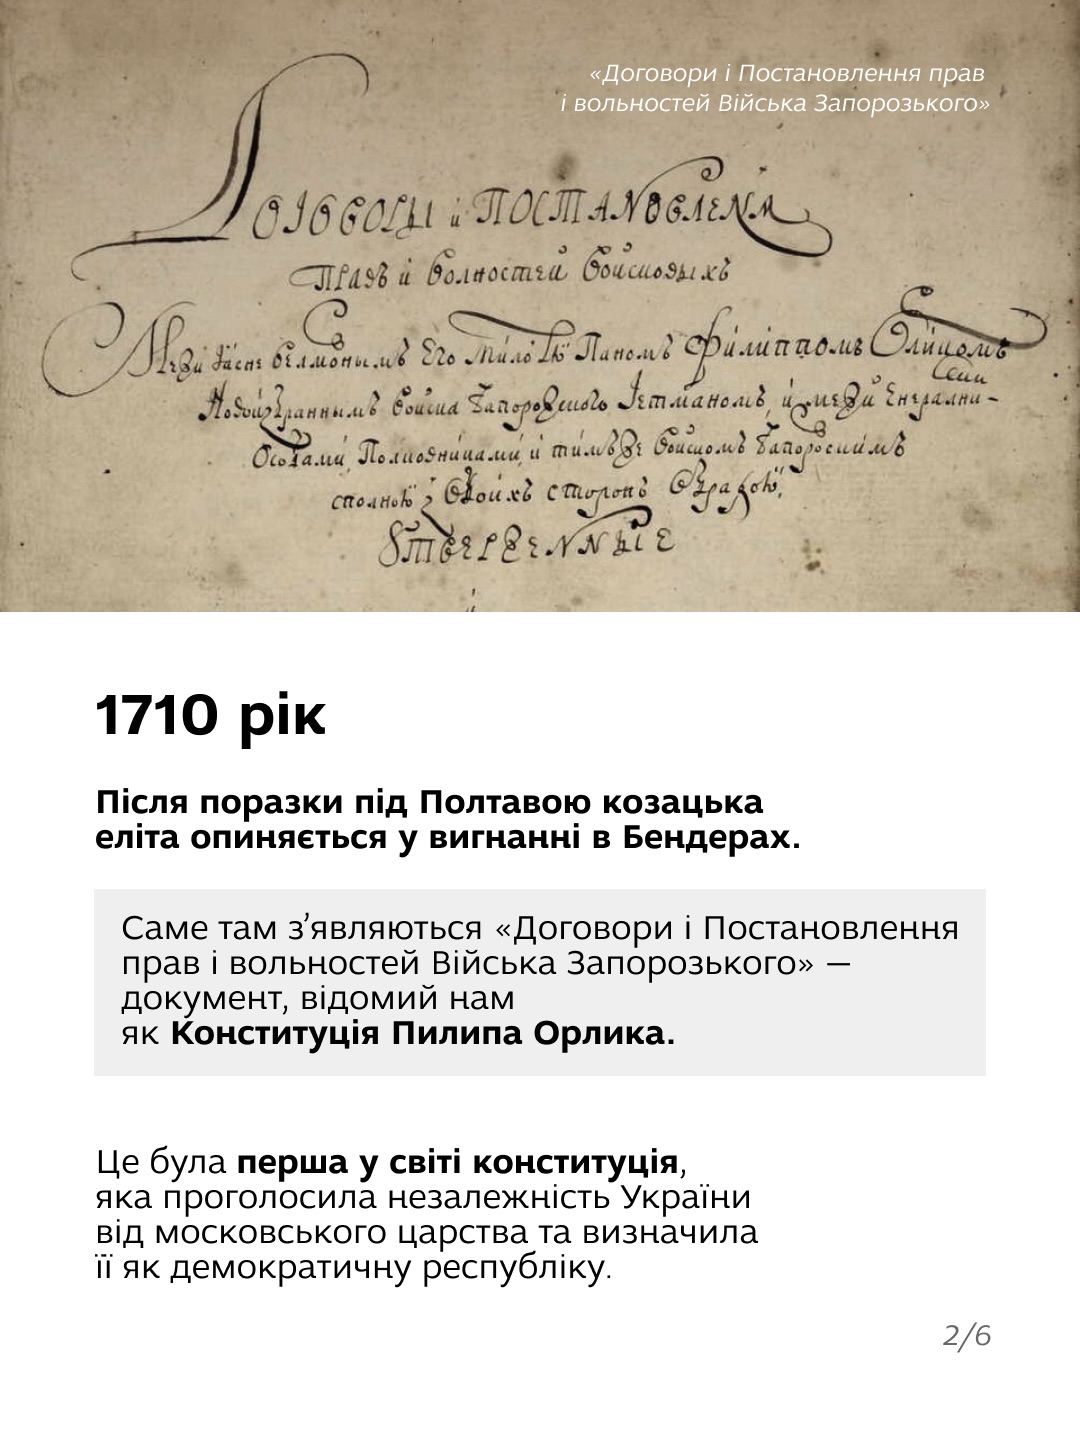 «Договори і Постановлення прав
і вольностей Війська Запорозького»
Договоры и постановленя
правъ и волностей войсковыхъ
Межи Ясне велможнымъ Его Милостю Паномъ Филиппомъ Орликомъ
Новоизбраннымъ войска Запорожского Гетманомъ, и межи Енерални-
Особами, Полковниками, и тимже войскомъ Запорозскимъ
сполною з обоихъ сторонъ
1710 рік
Після поразки під Полтавою козацька
еліта опиняється у вигнанні в Бендерах.
Саме там з’являються «Договори і Постановлення
прав і вольностей Війська Запорозького» —
документ, відомий нам
як Конституція Пилипа Орлика.
Це була перша у світі конституція,
яка проголосила незалежність України
від московського царства та визначила
її як демократичну республіку.
2/6